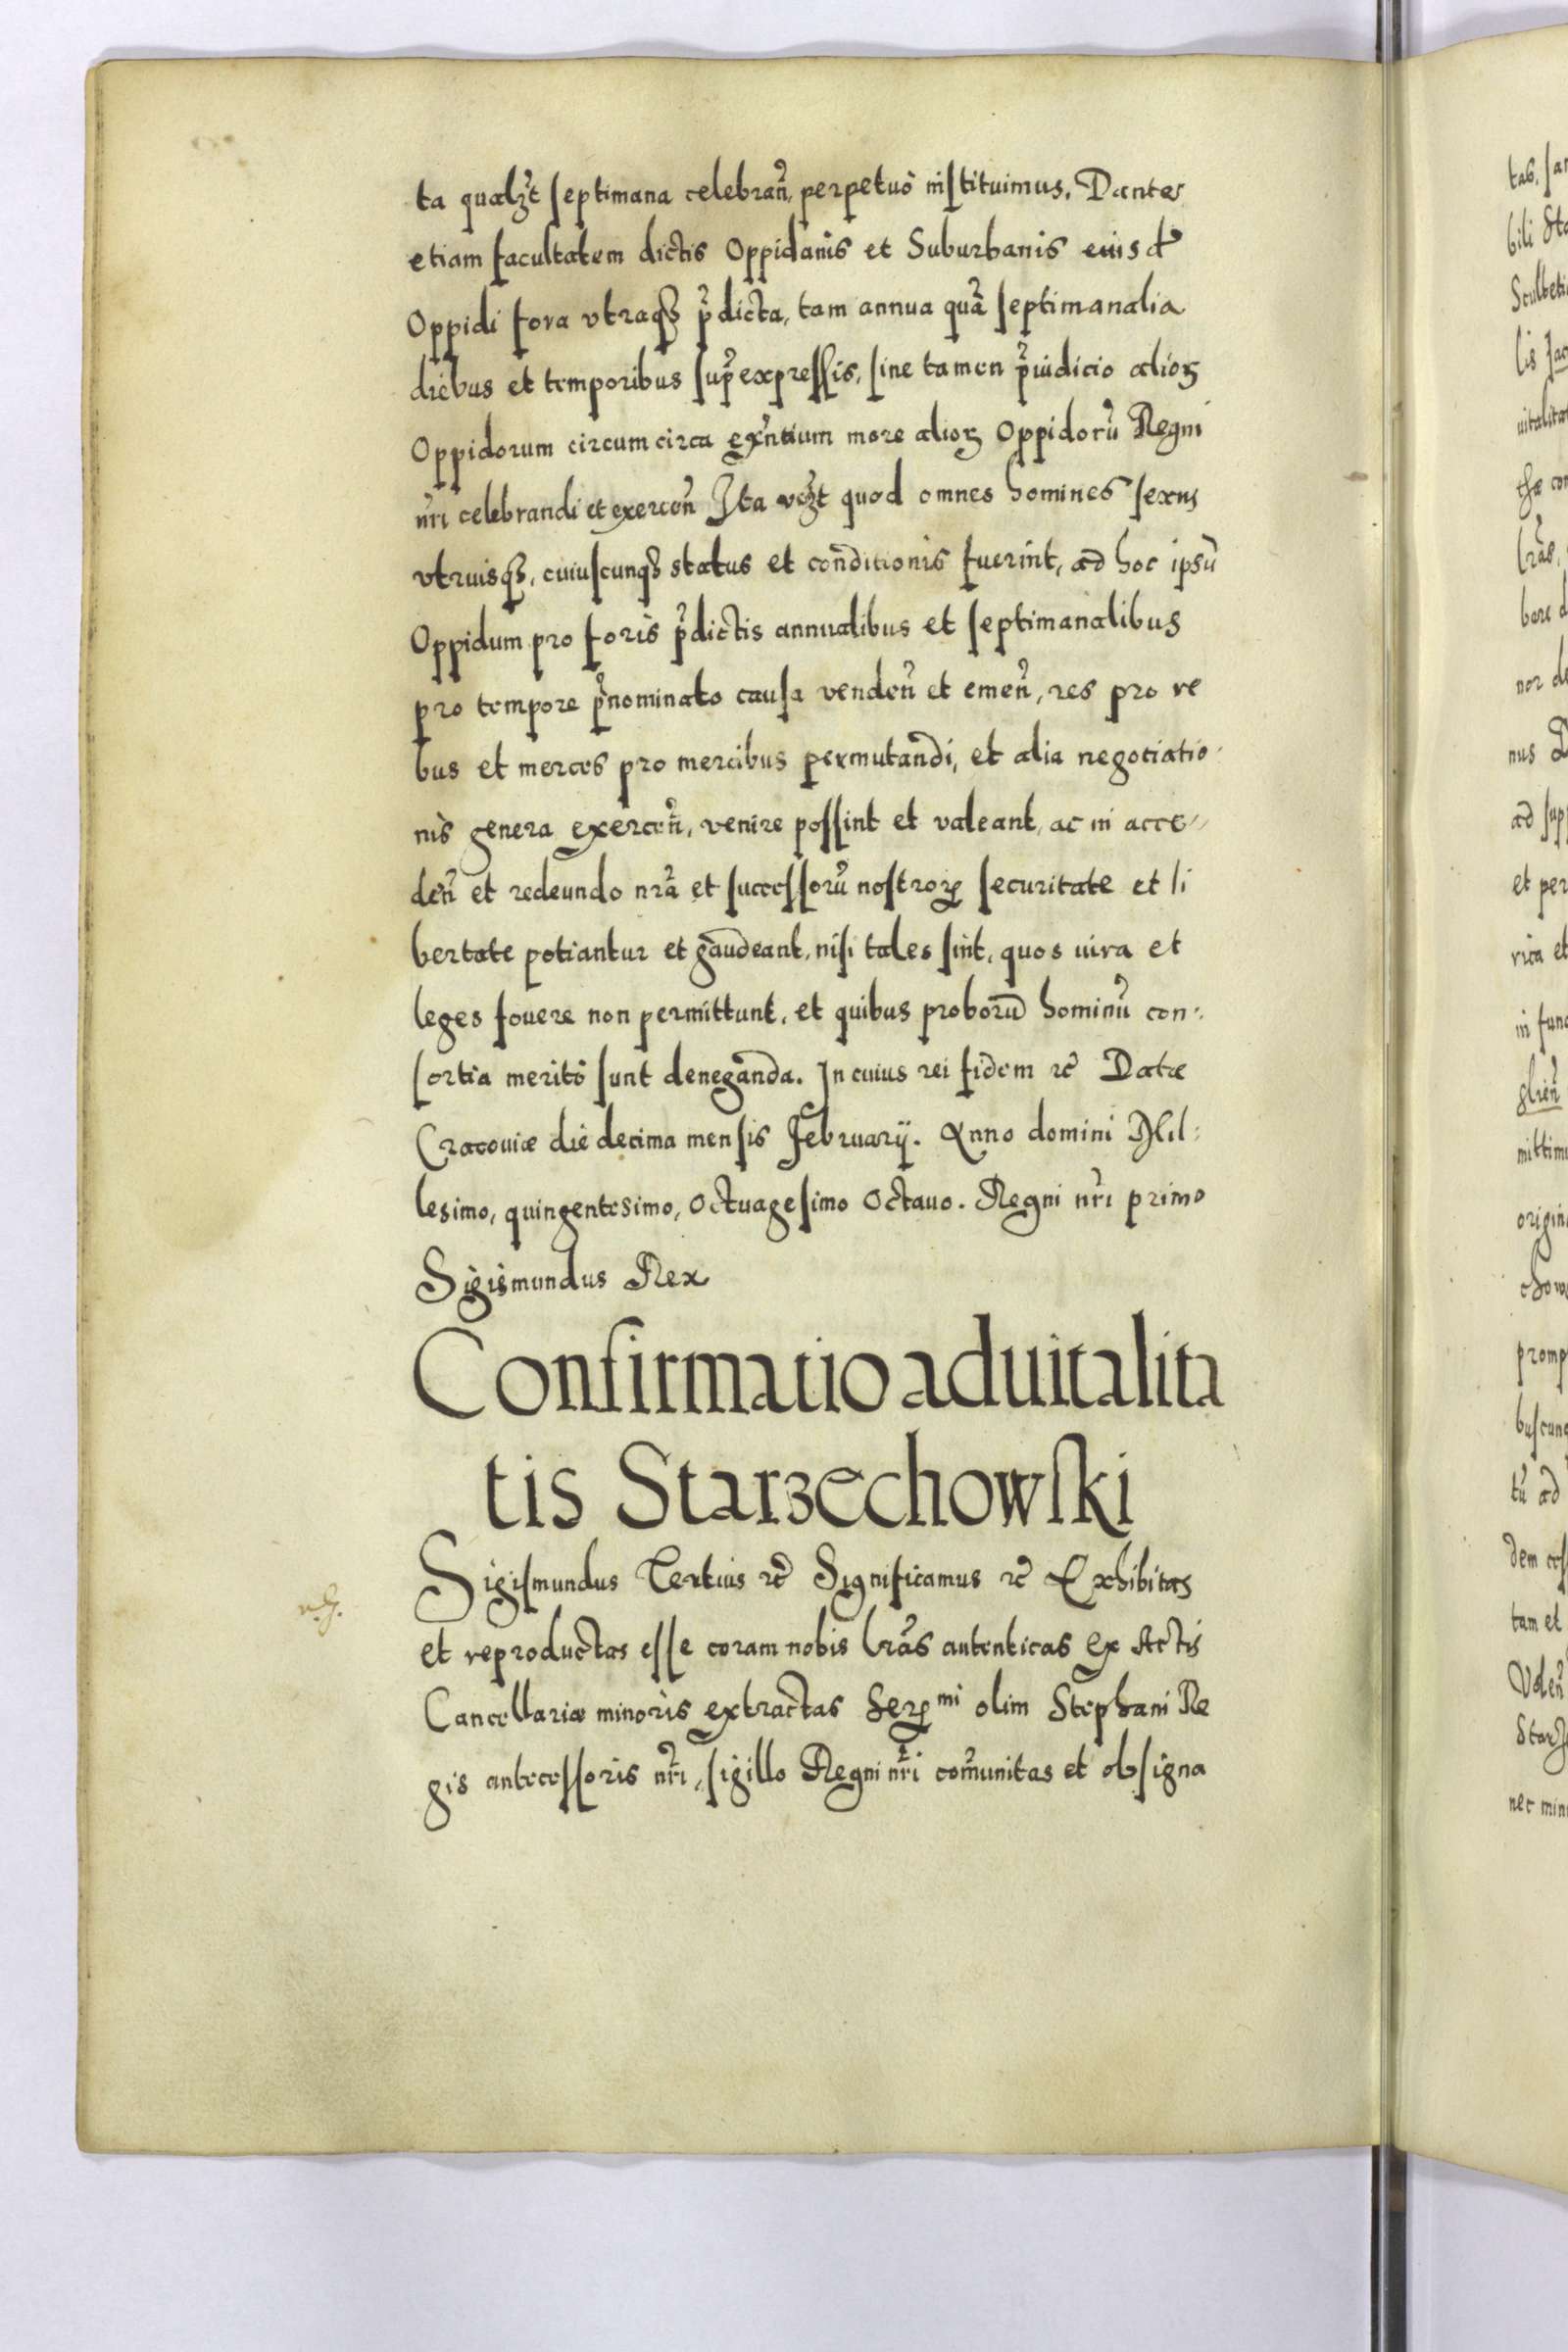 ta qualꝫt septimana celebrañ, perpetuò instituimus. Dantes
etiam facultatem dictis Oppidanis et Suburbanis eiusd
Oppidi fora vtraqꝫ p̃dicta, tam annua quã septimanalia
diebus et temporibus sup̃expressis, sine tamen p̃iudicio alioꝝ
Oppidorum circumcirca ex̃ntium more alioꝝ Oppidorũ Regni
nr̃i celebrandi et exerceñ Ita vcꝫt quod omnes homines sexus
vtriusqꝫ, cuiuscunqꝫ status et conditionis fuerint, ad hoc ipsũ
Oppidum pro foris p̃dictis annualibus et septimanalibus
pro tempore p̃nominato causa vendeñ et emeñ, res pro re
bus et merces pro mercibus permutandi, et alia negotiatio-
nis genera exerceñ, venire possint et valeant, ac in acce-
deñ et redeundo nrã et successorũ nostroꝝ securitate et li
bertate potiantur et gaudeant, nisi tales sint, quos iura et
leges fouere non permittunt, et quibus proborũ hominũ con-
sortia meritò sunt deneganda. In cuius rei fidem ꝛc̃ Datæ
Cracouiæ die decima mensis February. Anno domini Mil-
lesimo, quingentesimo, Octuagesimo Octauo. Regni nr̃i primo
Sigismundus Rex
Confirmatio aduitalita
tis Starzechowski
Sigismundus Tertius ꝛc̃ Significamus ꝛc̃ Exhibitas
et reproductas esse coram nobis lrãs autenticas ex Actis
Cancellariæ minoris extractas Serᵐⁱ olim Stephani Re
gis antecessoris nr̃i, sigillo Regni nr̃i com̃unitas et obsigna